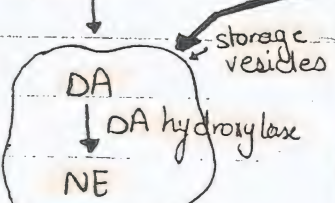 storage
vesicles
DA
DA hydroxylase
NE